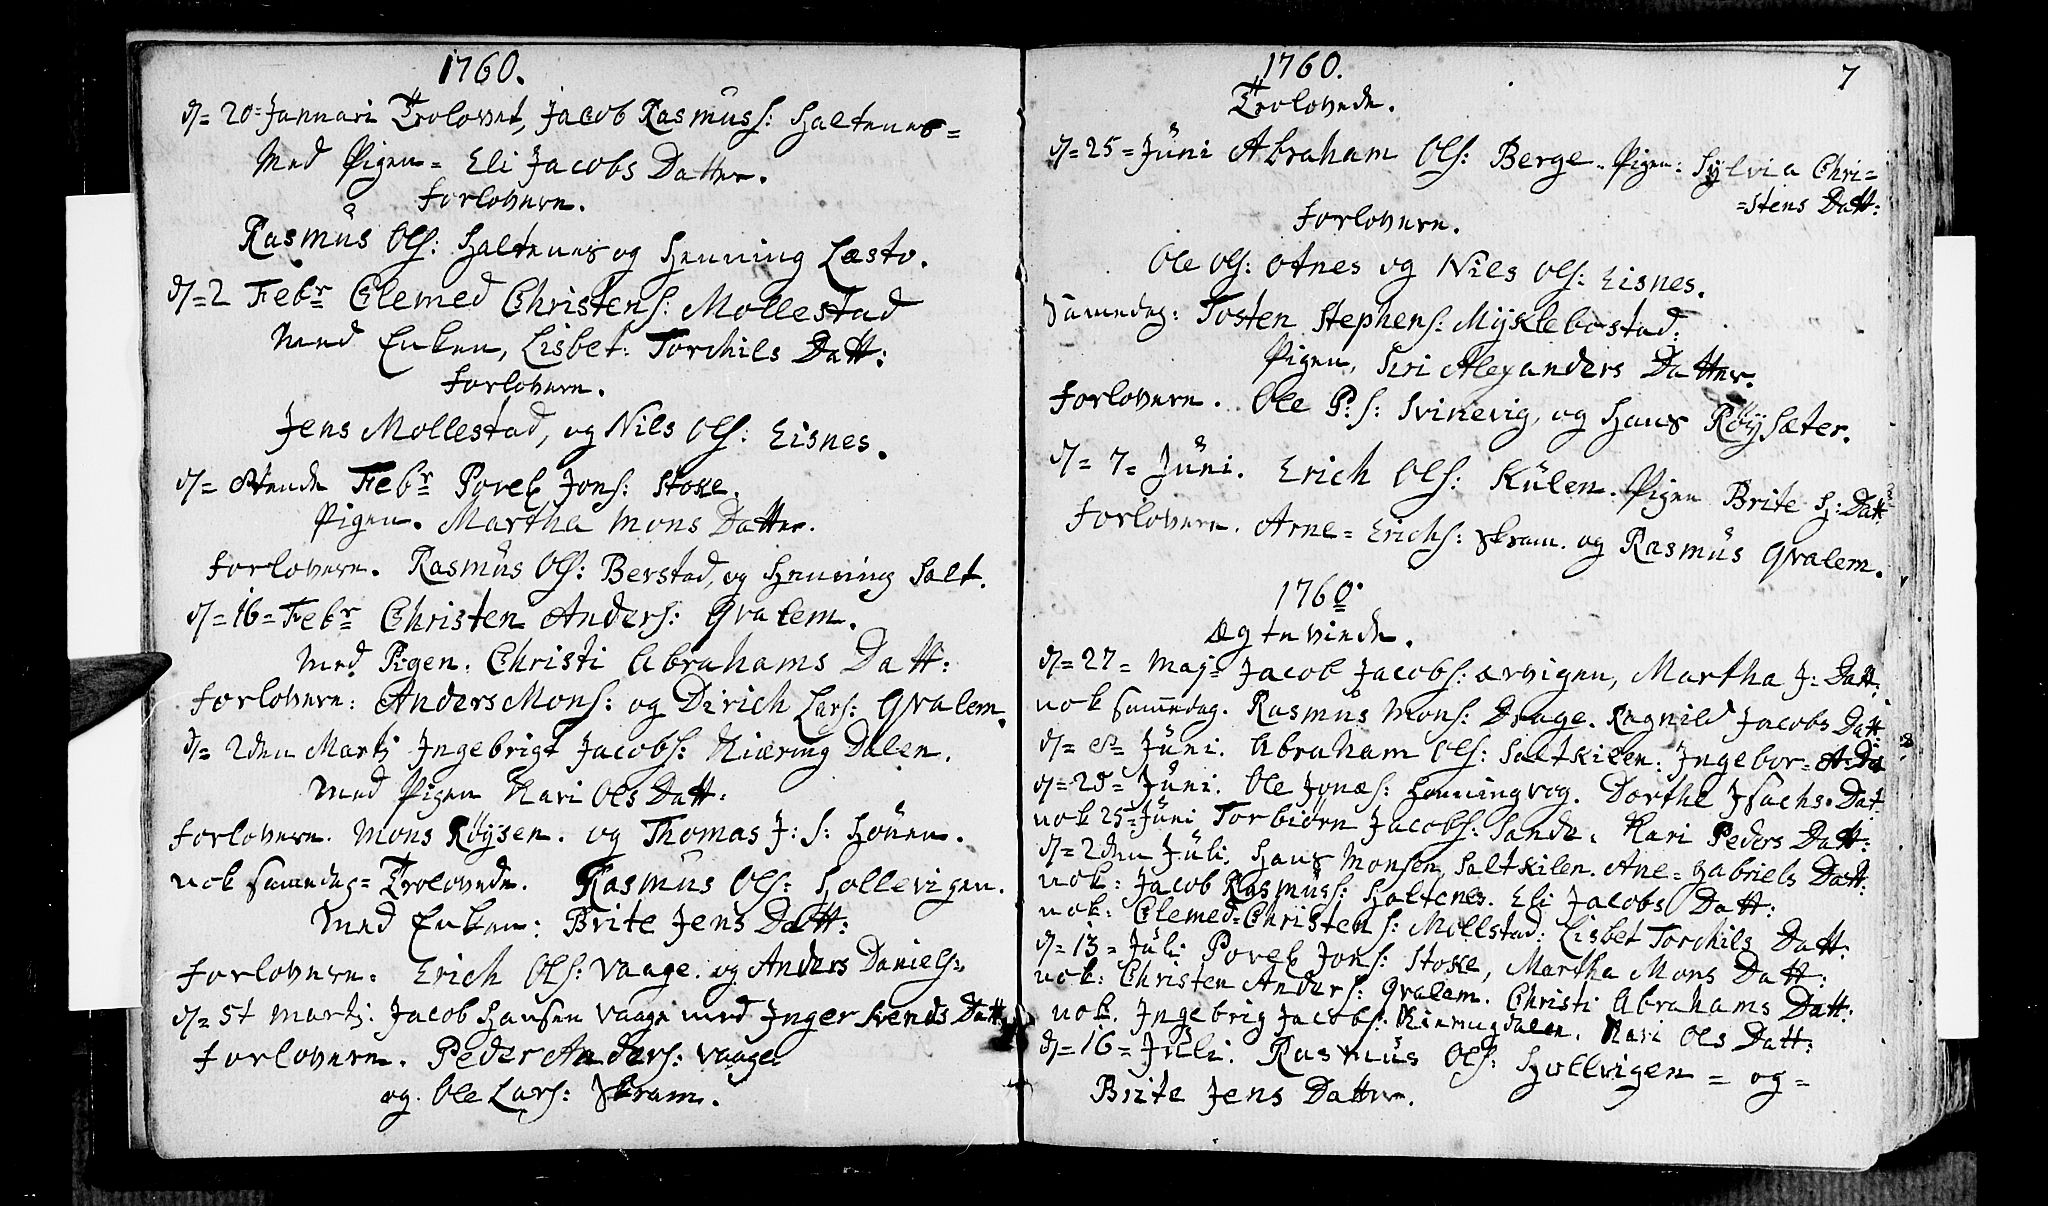 1760.
d= 20= Januari Trolovet, Jacob Rasmuss: Haltenes=
Med Pigen= Eli Jacobs Datter.
Forlovere.
Rasmus Ols: Haltenes og Henning Læsto.
d= 2 Febr Clemed Christens: Mollestad
med Enken, Lisbet: Torchils Datt:
Forlovere.
Jens Mollestad, og Nils Ols: Eisnes.
d= Febr Povel Jons: Stoxe.
Pigen. Martha Mons Datter.
Forlovere. Rasmus Ols: Berstad, og Henning Salt.
d= 16= Febr Christen Anders: Qvalem.
med Pigen. Christi Abrahams Datt:
Forlovere: Anders Mons: og Dirich Lars: Qvalem.
d= 2den Martj Ingebrigt Jacobs: Kiæring Dalen.
med Pigen Kari Ols Datt:
Forlovere. Mons Røysen. og Thomas J: S: Houen.
nok samedag= Trolovede. Rasmus Ols: Hollevigen.
med Enken: Brite Jens Datt:
Forlovere. Erich Ols: Vaage. og Anders Daniels=
d= 5t Martj: Jacob Hansen Vaage med Inger Svends Datt:
Forlovere. Peder Anders: Vaage.
og. Ole Lars: Skram.
1760.
7
Trolovede.
d= 25= Juni Abraham Ols: Berge. Pigen: Sylvia Chri=
=stens Datt:
Forlovere.
Ole Ols: Otnes og Nils Ols: Eisnes.
Samedag: Tosten Stephens: Myklebostad:
Pigen, Siri Alexanders Datter.
Forlovere. Ole P: S: Svinevig, og Hans Røysæter.
d= 7= Juni. Erich Ols: Külen. Pigen Brite H: Datt:
Forlovere. Arne= Erichs: Skram. og Rasmus Qvalem.
1760.
Ægteviede.
d= 27= Maj= Jacob Jacobs: Arvigen, Martha J: Datt:
nok samedag. Rasmus Mons: Drage. Ragnild Jacobs Datt:
d= Juni. Abraham Ols: Saltkilen: Ingebor= A: Da
d= 25= Juni. Ole Jonæs: Honningvog. Dorthe Isachs. Dat
nok 25= Juni Torbiørn Jacobs: Sande. Kari Peders Datt:
d= 2den Juli. Hans Monsen Saltkilen. Ane= Gabriels Datt:
nok: Jacob Rasmuss: Haltenes. Eli Jacobs Datt:
nok: Clemed= Christens: Mollstad: Lisbet Torchils Datt.
d= 13= Juli Povel Jons: Stoxe, Martha Mons Datt:
nok: Christen Anders: Qvalem. Christi Abrahams Datt:
nok. Ingebrig Jacobs: Kieringdalen. Kari Ols Datt:
d= 16= Juli. Rasmus Ols: Hollvigen= og=
Brite Jens Datter.